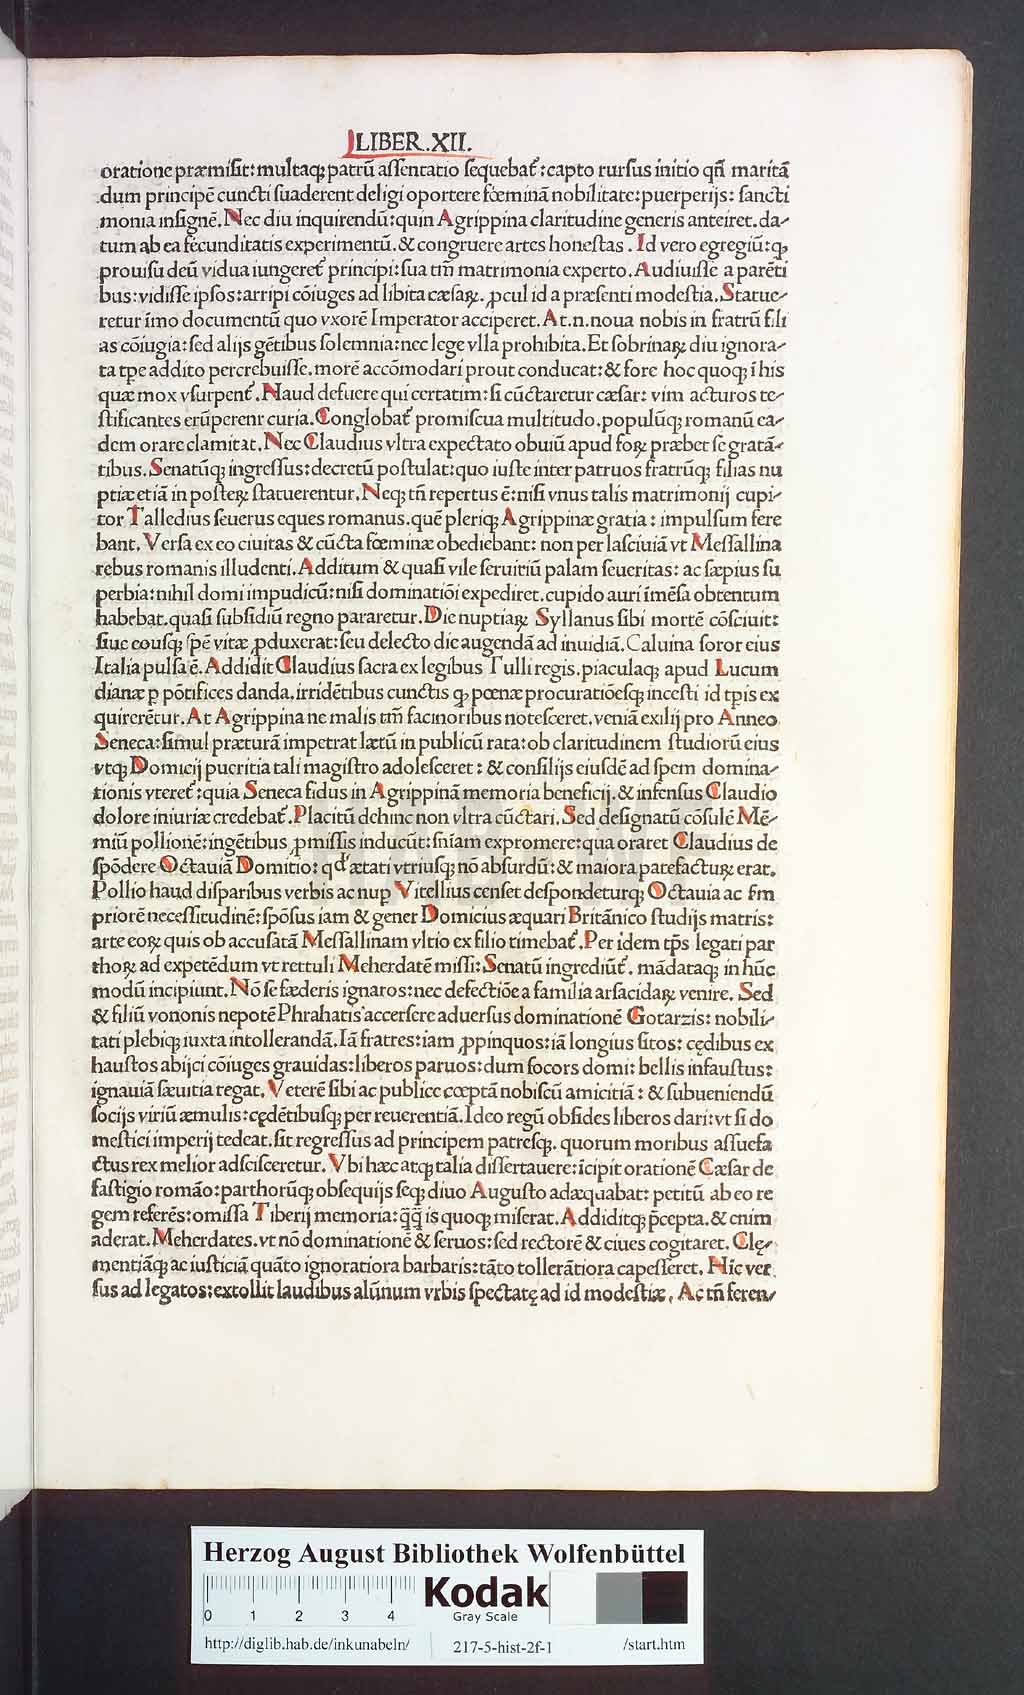 LIBER.XII.
oratione præmisit: multaqꝫ patrū assentatio sequebat᷑: capto rursus initio qñ maritā
dum principē cuncti suaderent deligi oportere fœminā nobilitate: puerperijs: sancti
monia insignē. Nec diu inquirendū: quin Agrippina claritudine generis anteiret. da-
tum ab ea fecunditatis experimentū. & congruere artes honestas. Id vero egregiū: qꝫ
prouisu deū vidua iungeret᷑ principi: sua tm̄ matrimonia experto. Audiuisse a parēti
bus: vidisse ipsos: arripi cōiuges ad libita cæsaꝝ. ꝓcul id a præsenti modestia. Statue-
retur īmo documentū quo vxorē Imperator acciperet. At.n.noua nobis in fratrū fili
as cōiugia: sed alijs gētibus solemnia: nec lege vlla prohibita. Et sobrinaꝝ diu ignora-
ta tꝑe addito percrebuisse. morē accōmodari prout conducat: & fore hoc quoqꝫ ī his
quæ mox vsurpent᷑. Naud defuere qui certatim: si cūctaretur cæsar: vim acturos te-
stificantes erūperenr curia. Conglobat᷑ promiscua multitudo. populūqꝫ romanū ea-
dem orare clamitat. Nec Claudius vltra expectato obuiū apud foꝝ præbet se gratā-
tibus. Senatūqꝫ ingressus: decretū postulat: quo iuste inter patruos fratrūqꝫ filias nu
ptiæ etiā in posteꝝ statuerentur. Neqꝫ tñ repertus ē: nisi vnus talis matrimonij cupi-
tor Talledius seuerus eques romanus. quē pleriqꝫ Agrippinæ gratia: impulsum fere
bant. Versa ex eo ciuitas & cūcta fœminæ obediebant: non per lasciuiā vt Messallina
rebus romanis illudenti. Additum & quasi vile seruitiū palam seueritas: ac sæpius su
perbia: nihil domi impudicū: nisi dominatiōi expediret. cupido auri īmēsa obtentum
habebat. quasi subsidiū regno pararetur. Die nuptiaꝝ Syllanus sibi mortē cōsciuit:
siue eousqꝫ spē vitæ ꝓduxerat: seu delecto die augendā ad inuidiā. Caluina soror eius
Italia pulsa ē. Addidit Claudius sacra ex legibus Tulli regis. piaculaqꝫ apud Lucum
dianæ ꝑ pōtifices danda. irridētibus cunctis qꝫ pœnæ procuratiōesqꝫ incesti id tꝑis ex
quirerētur. At Agrippina ne malis tm̄ facinoribus notesceret. veniā exilij pro Anneo
Seneca: simul præturā impetrat lætū in publicū rata: ob claritudinem studiorū eius
vtqꝫ Domicij pueritia tali magistro adolesceret: & consilijs eiusdē ad spem domina-
tionis vteret᷑: quia Seneca fidus in Agrippinā memoria beneficij. & infensus Claudio
dolore iniuriæ credebat᷑. Placitū dehinc non vltra cūctari. Sed designatū cōsulē Mē-
miū pollionē: ingētibus ꝓmissis inducūt: sñiam expromere: qua oraret Claudius de
spōdere Octauiā Domitio: qd́ ætati vtriusqꝫ nō absurdū: & maiora patefactuꝝ erat.
Pollio haud disparibus verbis ac nuꝑ Vitellius censet despondeturqꝫ Octauia ac sm̄
priorē necessitudinē: spōsus iam & gener Domicius æquari Britānico studijs matris:
arte eoꝝ quis ob accusatā Messallinam vltio ex filio timebat᷑. Per idem tp̄s legati par
thoꝝ ad expetēdum vt rettuli Meherdatē missi: Senatū ingrediūt᷑. mādataqꝫ in hūc
modū incipiunt. Nō se fæderis ignaros: nec defectiōe a familia arsacidaꝝ venire. Sed
& filiū vononis nepotē Phrahatis accersere aduersus dominationē Gotarzis: nobili-
tati plebiqꝫ iuxta intollerandā. Iā fratres: iam ꝓpinquos: iā longius sitos: cędibus ex
haustos abijci cōiuges grauidas: liberos paruos: dum socors domi: bellis infaustus:
ignauiā sæuitia regat. Veterē sibi ac publice cœptā nobiscū amicitiā: & subueniendū
socijs viriū æmulis: cędētibusqꝫ per reuerentiā. Ideo regū obsides liberos dari: vt si do
mestici imperij tedeat. sit regressus ad principem patresqꝫ. quorum moribus assuefa
ctus rex melior adscisceretur. Vbi hæc atqꝫ talia dissertauere: īcipit orationē Cæsar de
fastigio romāo: parthorūqꝫ obsequijs seqꝫ diuo Augusto adæquabat: petitū ab eo re
gem referēs: omissa Tiberij memoria: q̄q̄ is quoqꝫ miserat. Addiditqꝫ p̄cepta. & enim
aderat. Meherdates. vt nō dominationē & seruos: sed rectorē & ciues cogitaret. Clę-
mentiāqꝫ ac iusticiā quāto ignoratiora barbaris: tāto tollerātiora capesseret. Nic ver
sus ad legatos: extollit laudibus alūnum vrbis spectatę ad id modestiæ. Ac tñ feren-
HAB WF
Herzog August Bibliothek Wolfenbüttel
0 1 2 3 4
Kodak
Gray Scale
http://diglib.hab.de/inkunabeln/ 217-5-hist-2f-1 /start.htm